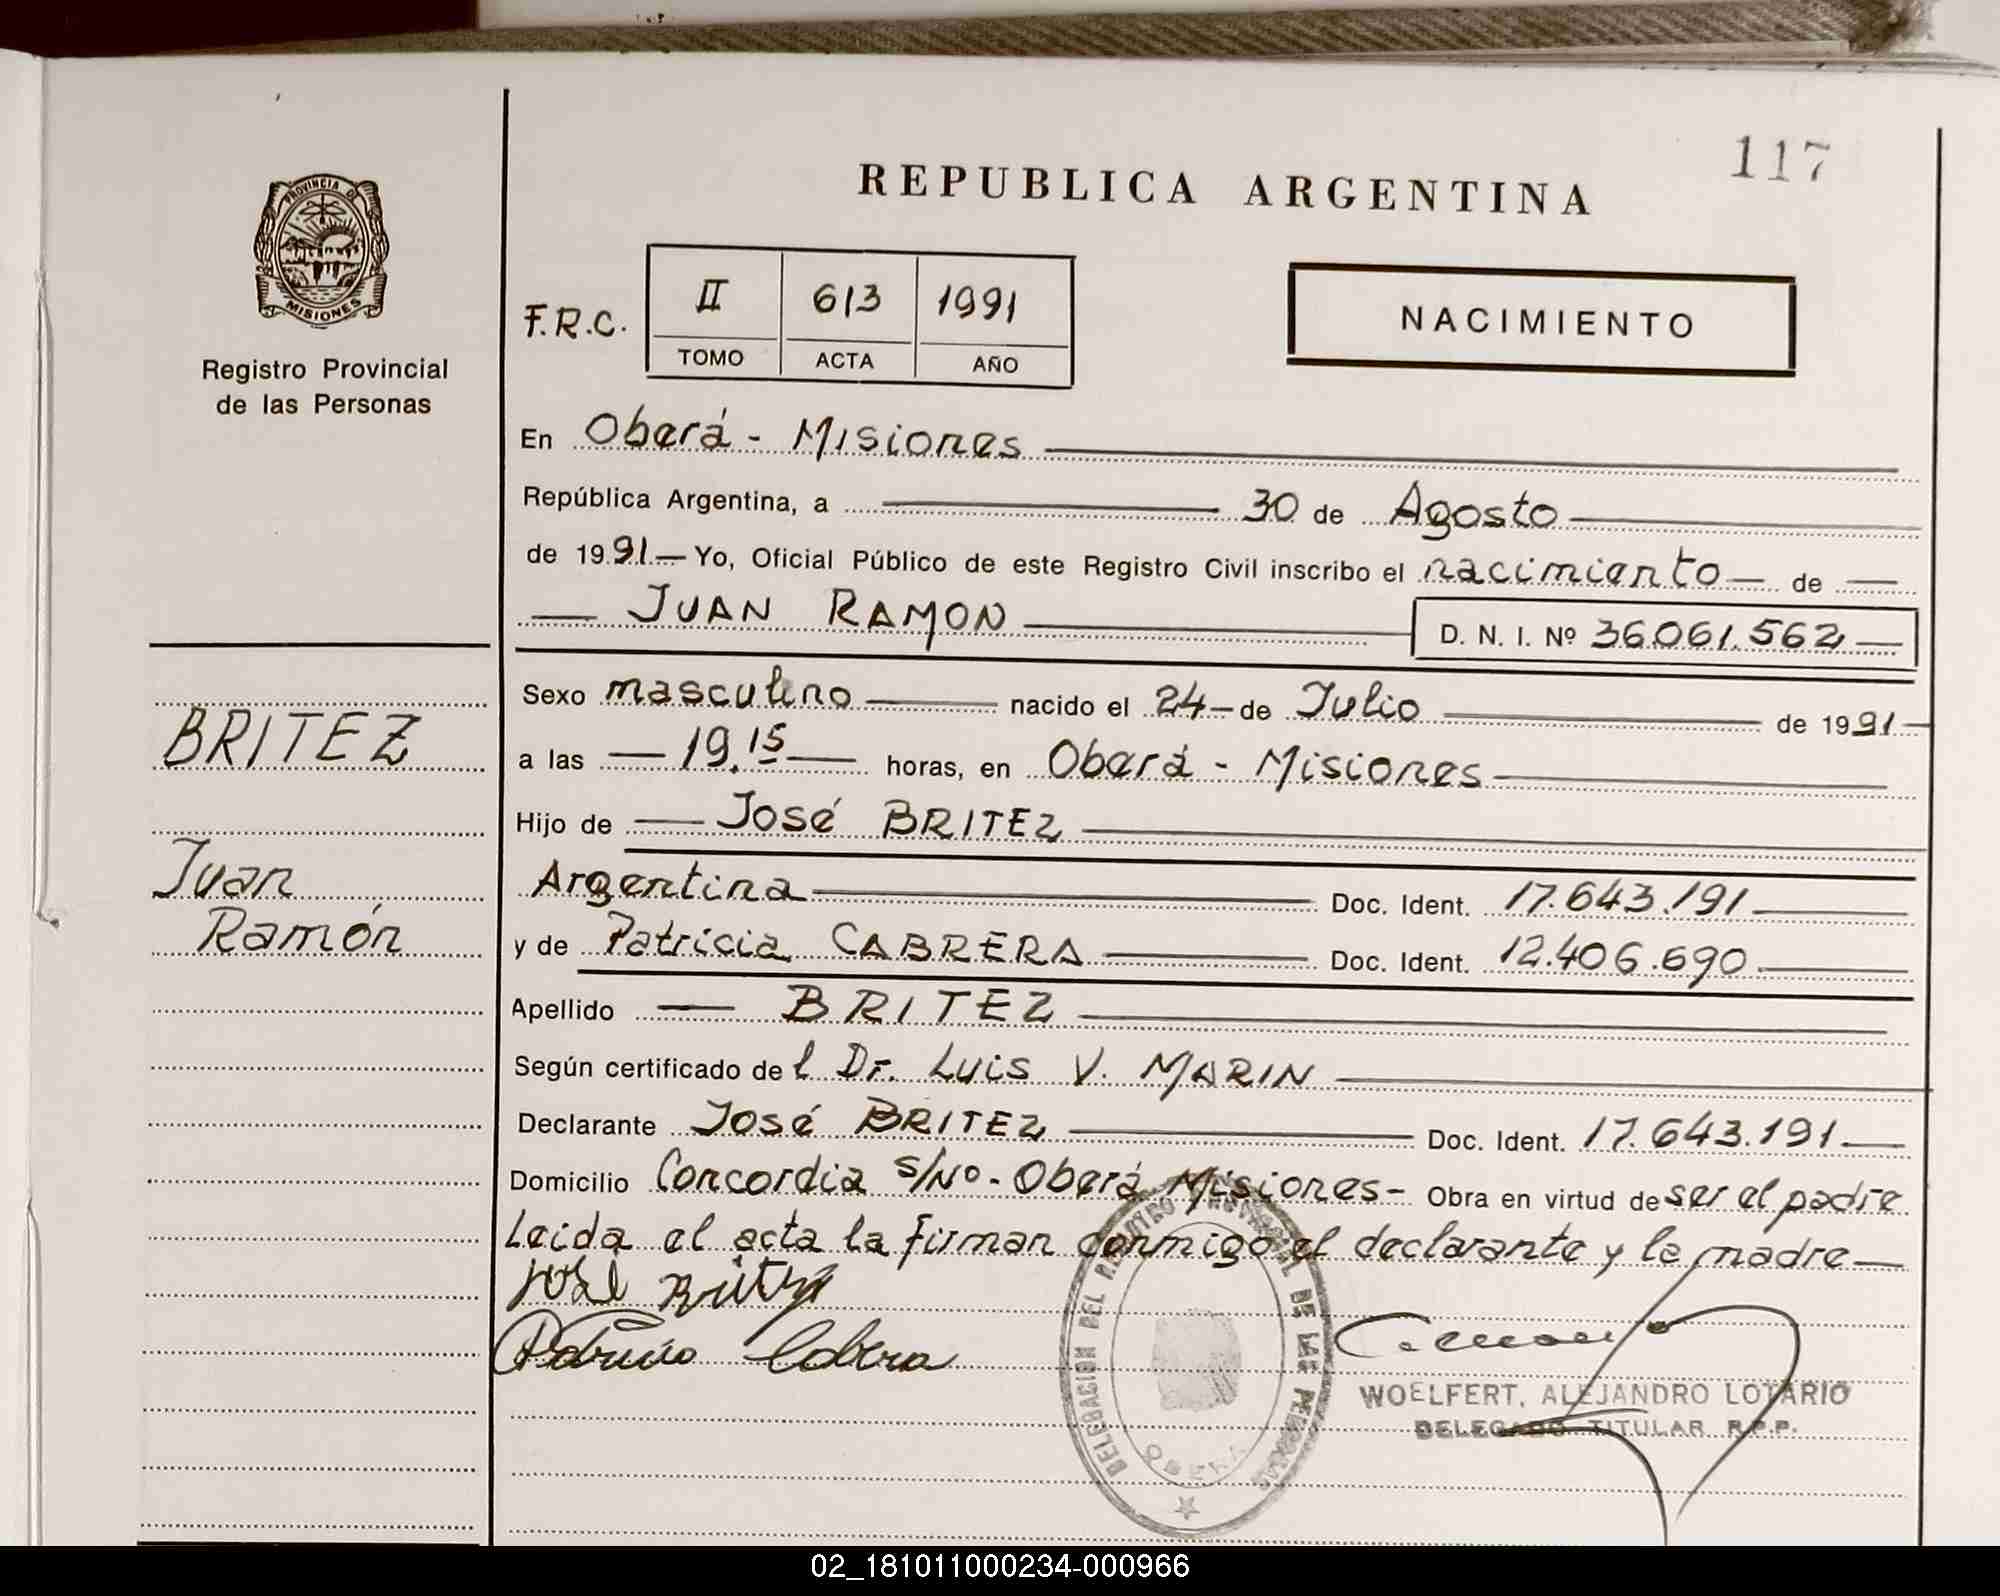 117
REPUBLICA ARGENTINA
PROVINCIA DE
MISIONES
Registro Provincial
de las Personas
F.R.C.
II 613 1991
TOMO ACTA AÑO
NACIMIENTO
En Oberá - Misiones
República Argentina, a 30 de Agosto
de 1991 Yo, Oficial Público de este Registro Civil inscribo el nacimiento de
JUAN RAMON
D. N. I. Nº 36.061.562
BRITEZ
Juan
Ramón
Sexo masculino nacido el 24 de Julio de 1991
a las 19.15 horas, en Oberá - Misiones
Hijo de José BRITEZ
Argentina Doc. Ident. 17.643.191
y de Patricia CABRERA Doc. Ident. 12.406.690
Apellido BRITEZ
Según certificado del Dr. Luis V. MARIN
Declarante José BRITEZ Doc. Ident. 17.643.191
Domicilio Concordia s/Nº - Oberá Misiones - Obra en virtud de ser el padre
Leida el acta la firman conmigo el declarante y la madre
José Britez
DELEGACION DEL REGISTRO PROVINCIAL DE LAS PERSONAS
OBERA
WOELFERT, ALEJANDRO LOTARIO
DELEGADO TITULAR R.P.P.
02_181011000234-000966